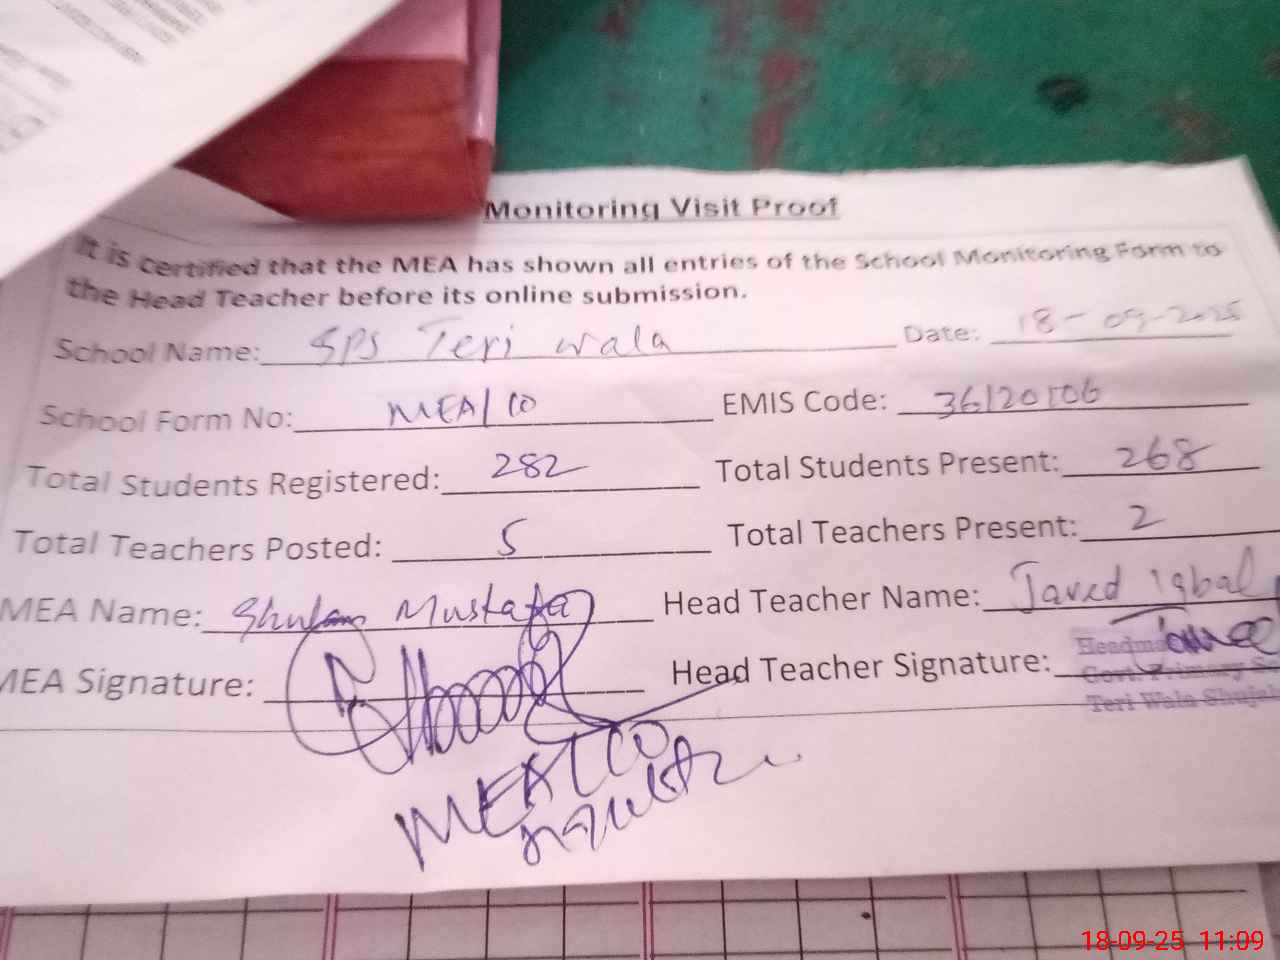 Monitoring Visit Proof
It is certified that the MEA has shown all entries of the School Monitoring Form to
the Head Teacher before its online submission.
School Name: SPS Teri wala Date: 18-09-2025
School Form No: MEA/ co EMIS Code: 36120506
Total Students Registered: 282 Total Students Present: 268
Total Teachers Posted: 5 Total Teachers Present: 2
MEA Name: Ghulam Mustafa Head Teacher Name: Javed Iqbal
MEA Signature: Head Teacher Signature:
Govt. Primary
Teri Wala
MEA
18-09-25 11:09